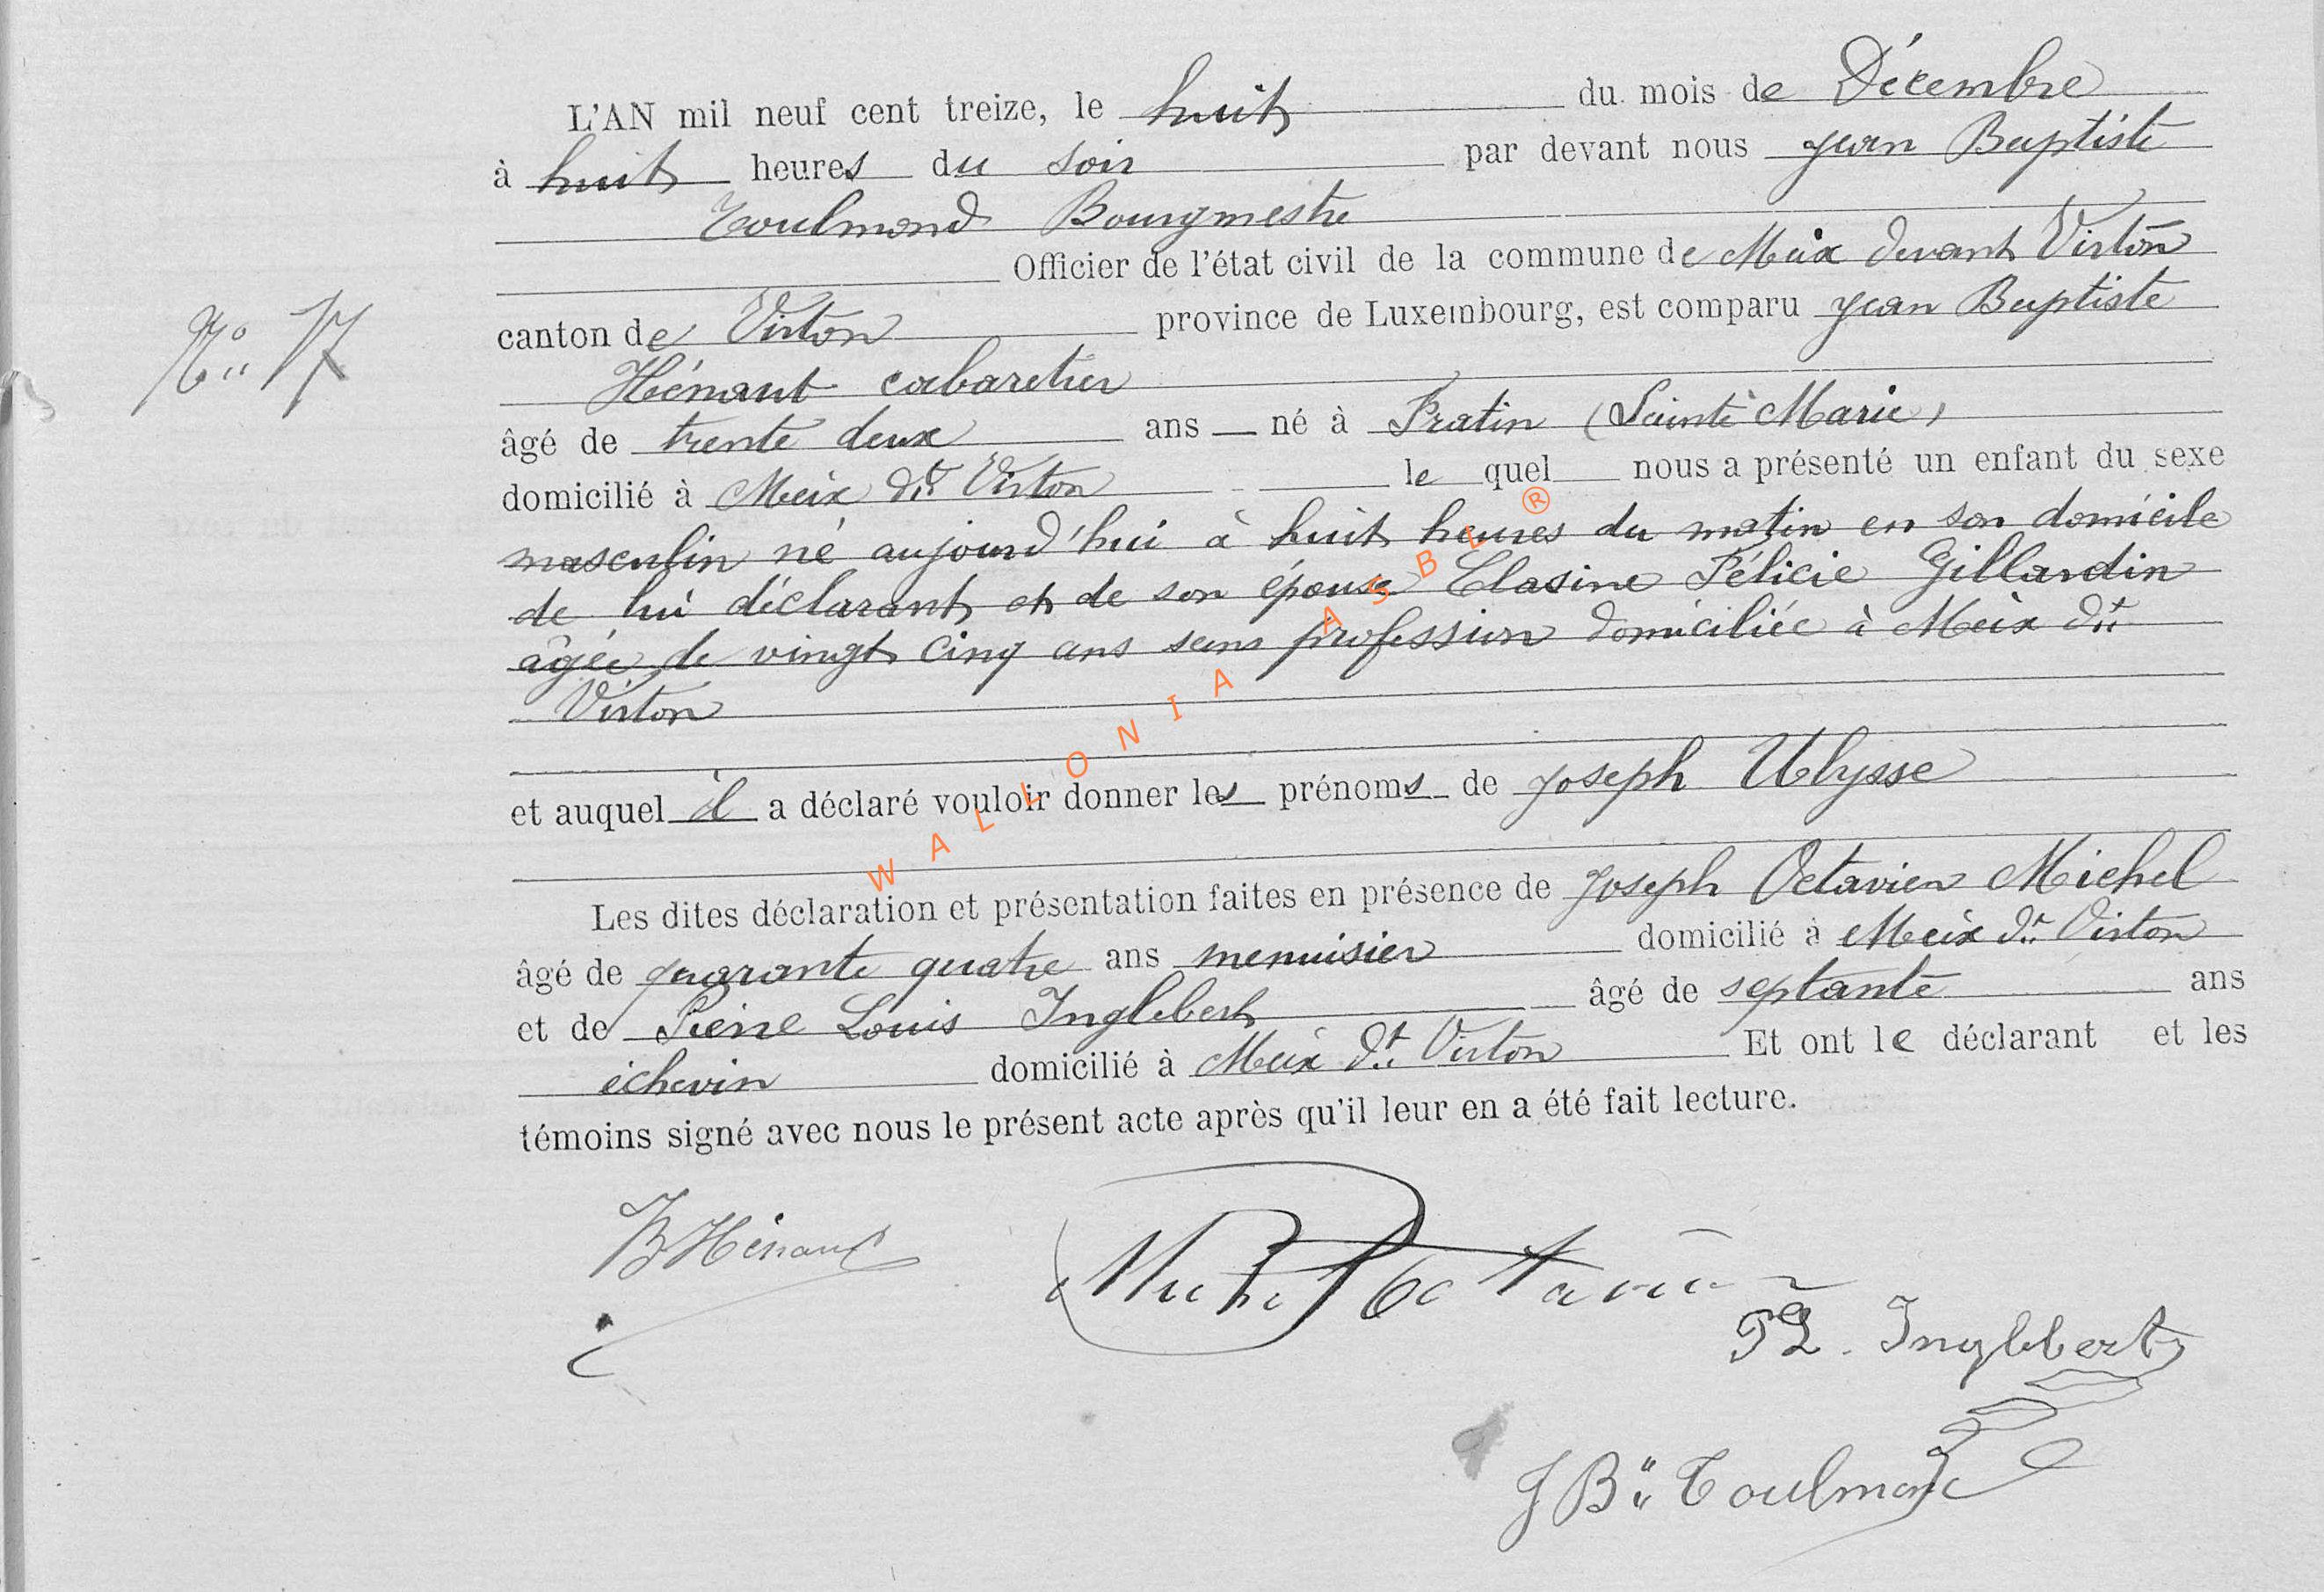 L'AN mil neuf cent treize, le huit du mois de Décembre
à huit heures du soir par devant nous Jean Baptiste
Toulmond Bourgmestre
Officier de l'état civil de la commune de Meix devant Virton
canton de Virton province de Luxembourg, est comparu Jean Baptiste
N° 17
Hénaut cabaretier
âgé de trente deux ans né à Fratin (Sainte Marie)
domicilié à Meix dt Virton le quel nous a présenté un enfant du sexe
masculin né aujourd'hui à huit heures du matin en son domicile
de lui déclarant et de son épouse Clasine Félicie Gillardin
âgée de vingt cinq ans sans profession domiciliée à Meix dt
Virton
et auquel il a déclaré vouloir donner les prénoms de Joseph Ulysse
Les dites déclaration et présentation faites en présence de Joseph Octavien Michel
âgé de quarante quatre ans menuisier domicilié à Meix dt Virton
et de Pierre Louis Inglebert âgé de septante ans
échevin domicilié à Meix dt Virton Et ont le déclarant et les
témoins signé avec nous le présent acte après qu'il leur en a été fait lecture.
JBHénaut
Michel Octavien
PL. Inglebert
JB Toulmond
WALLONIA ASBL ®